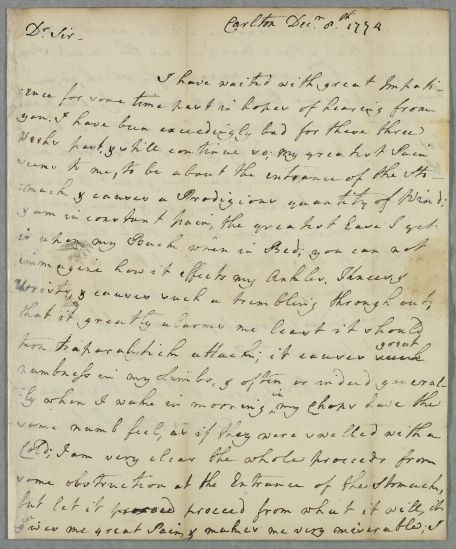 Carlton Decr. 8.th 1774
Dr. Sir-
I have waited with great Impati-
ence for some time past in hopes of hearing from
you. I have been exceedingly bad for these three
weeks past, & still continue so. My greatest Pain
seems to me, to be about the entrance of the Sto-
mach & causes a Prodigious quantity of Wind;
I am in constant pain, the greatest Ease I get
is upon my Back when in Bed; you can not
immagine how it effects my Ankles, Knees, &
Wrists, & causes such a trembling through out,
that it greatly alarms me least it should
turn to a paralytick attack; it causes great
numbness in my Limbs, & often or indeed general-
ly when I wake in morning, in my Chops have the
same numb feel, as if they were swelled with a
Cold; I am very clear the whole proceeds from
some obstruction at the Entrance of the Stomach,
but let it proceed from what it will, it
gives me great Pain, & makes me very miserable; I